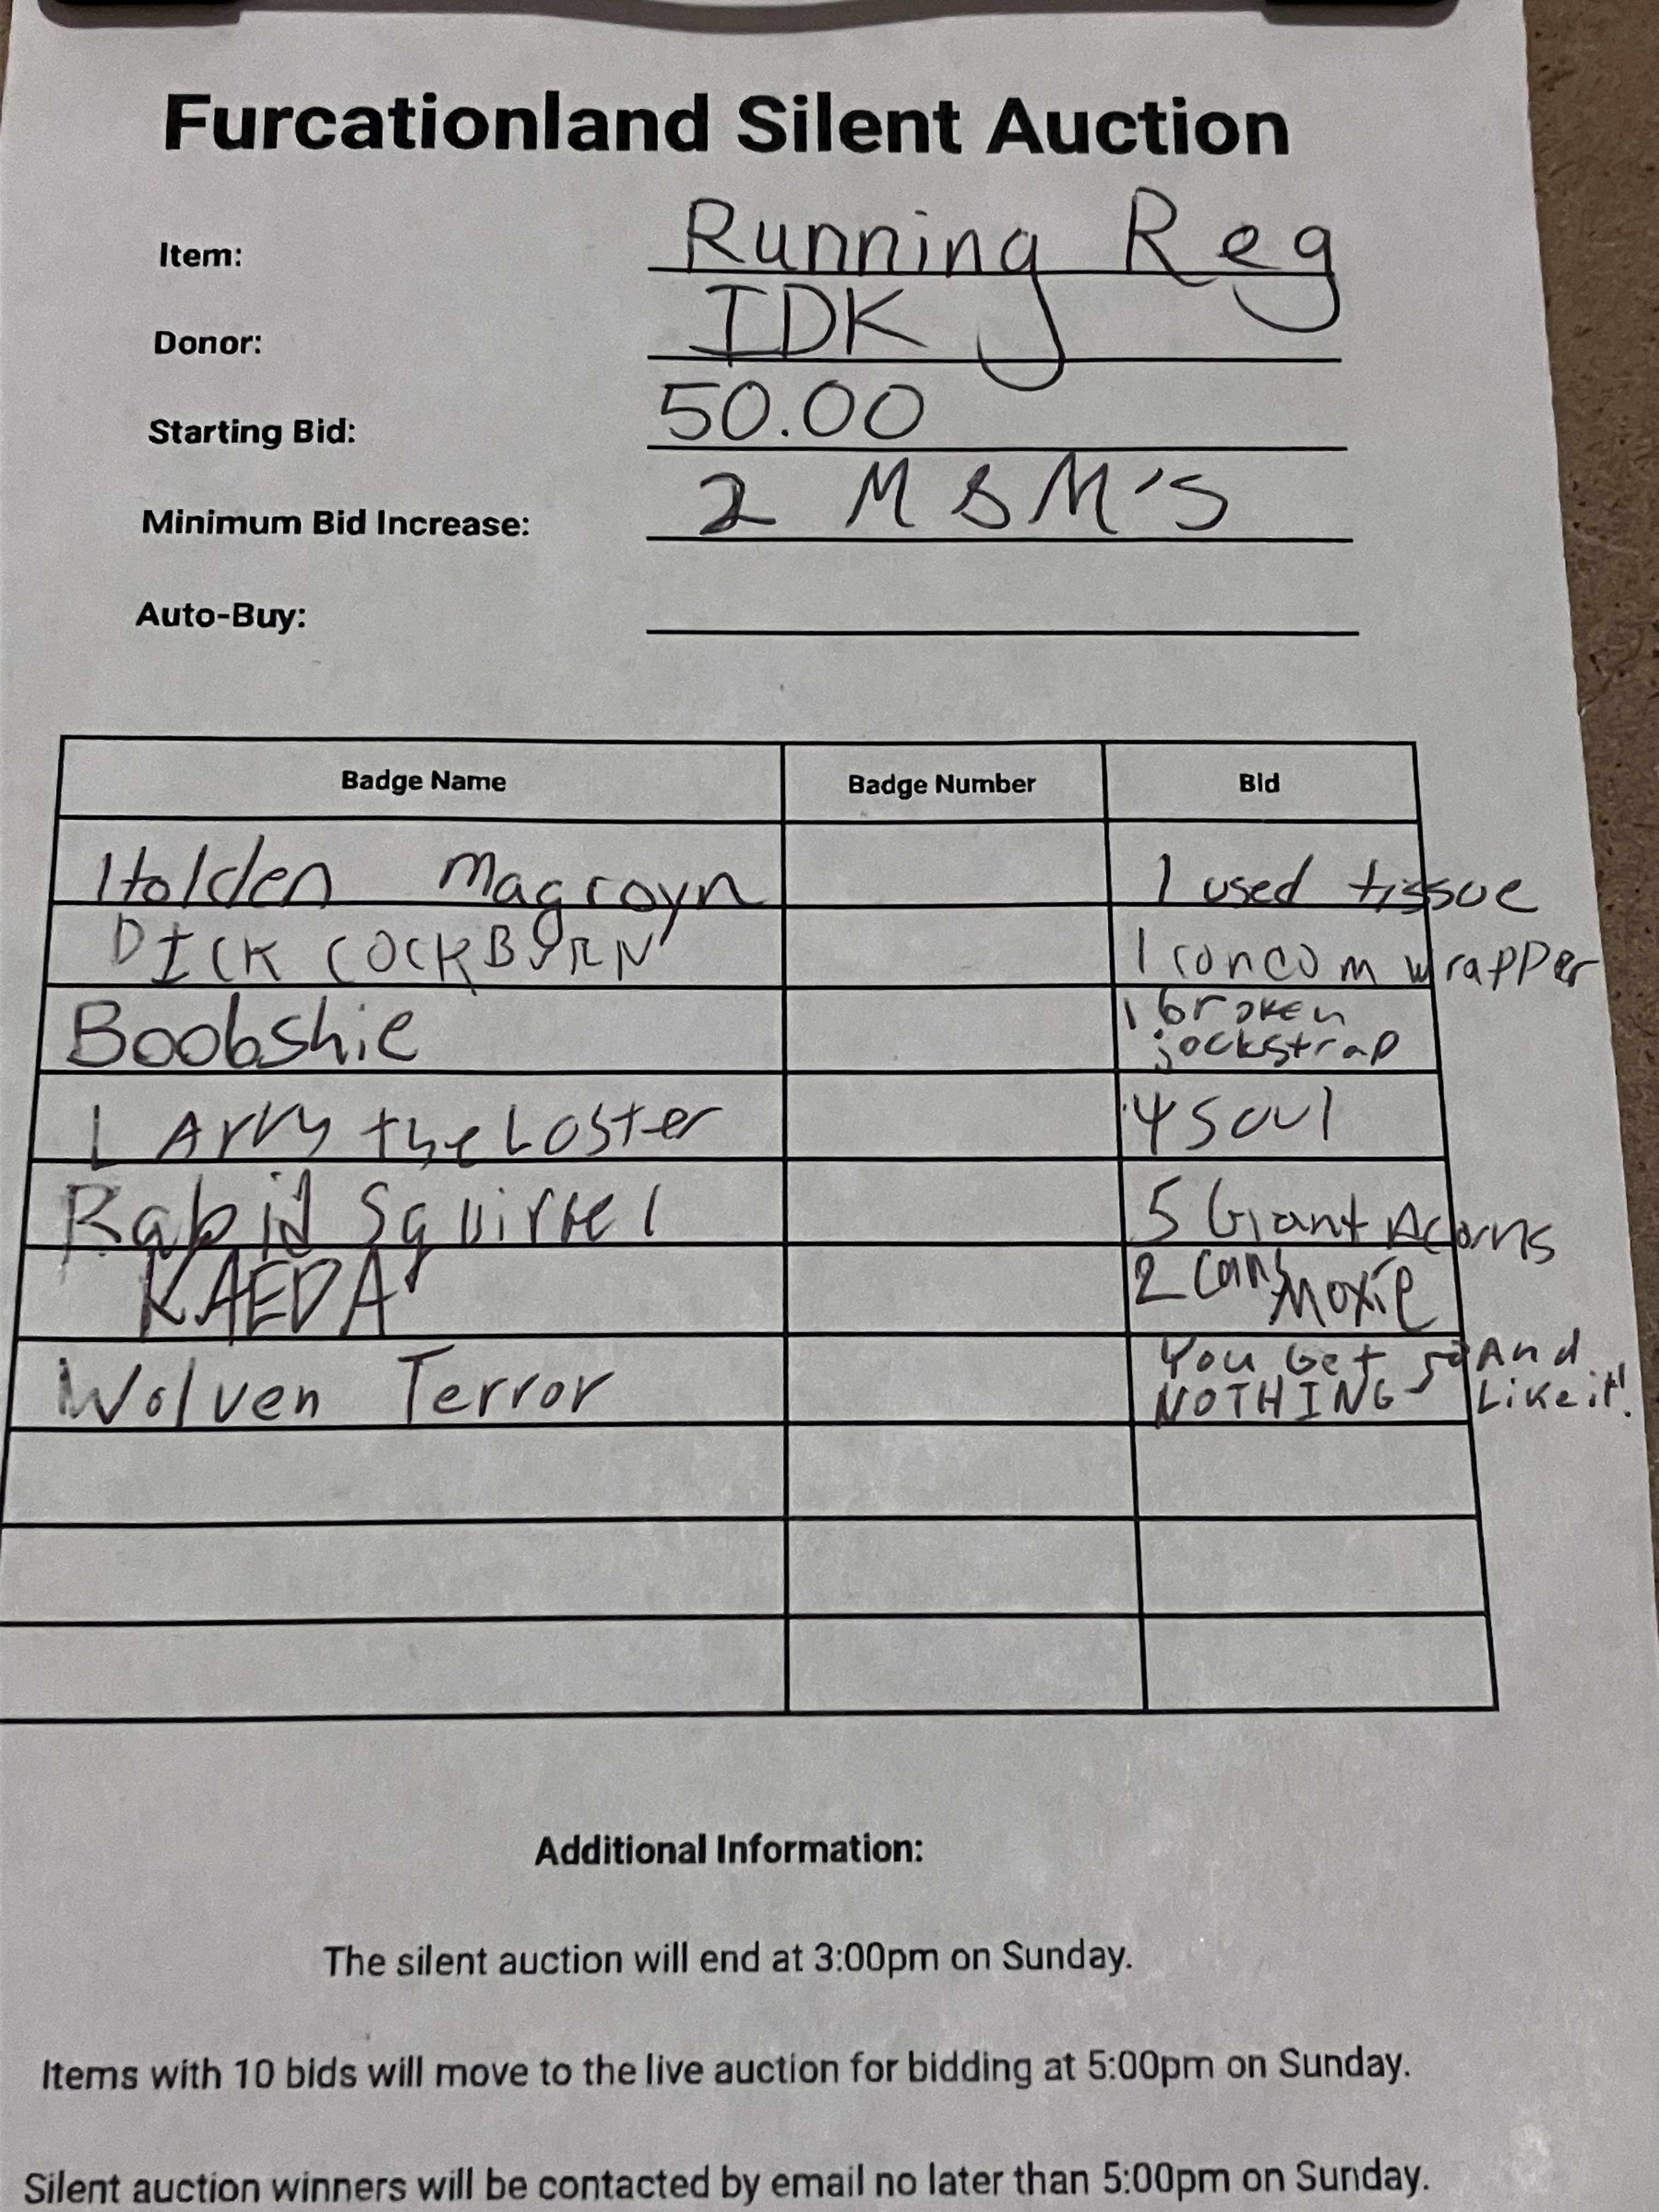 Furcationland Silent Auction
Item: Running Reg
Donor: IDK
Starting Bid: 50.00
Minimum Bid Increase: 2 M&M's
Auto-Buy:
Badge Name Badge Number Bid
Holden Magroyn 1 used tissue
DICK COCKBURN 1 concom wrapper
Boobshie 1 broken
jockstrap
LArry the Loster 4 soul
Rabid Squirrel 5 Giant Acorns
KAEDA 2 cans
Moxie
Wolven Terror You Get And
NOTHING Like it!
Additional Information:
The silent auction will end at 3:00pm on Sunday.
Items with 10 bids will move to the live auction for bidding at 5:00pm on Sunday.
Silent auction winners will be contacted by email no later than 5:00pm on Sunday.